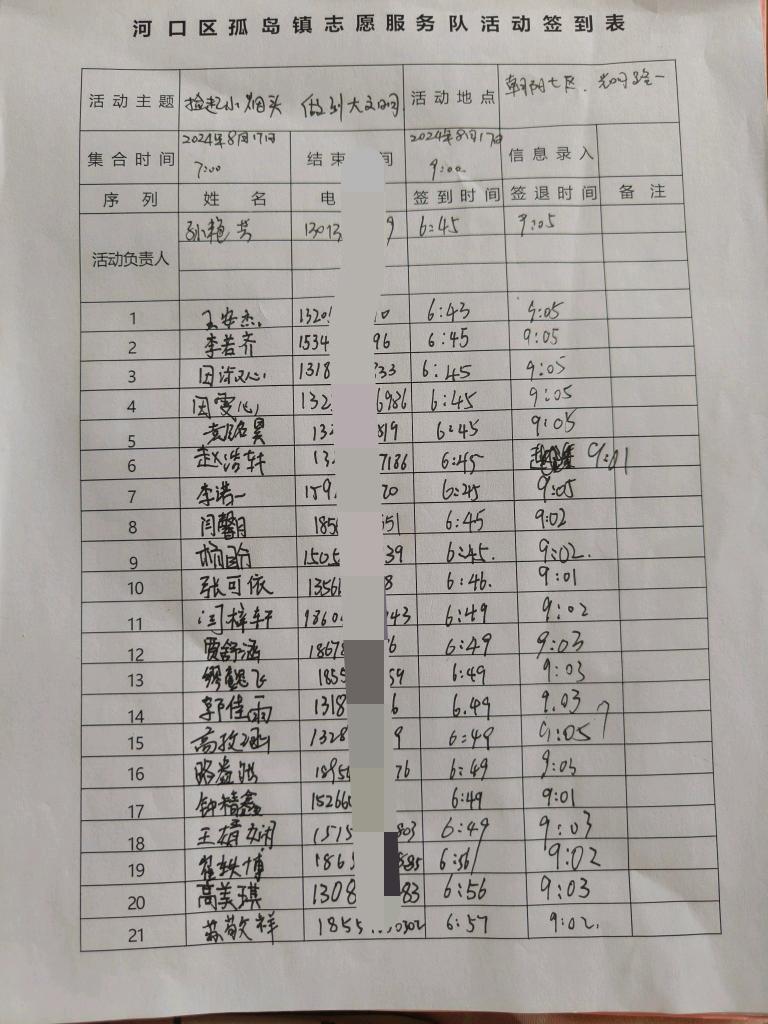 河口区孤岛镇志愿服务队活动签到表
活动主题 捡起小烟头 做到大文明 活动地点 朝阳七区.
集合时间 2024年8月17日 7:00 结束 间 2024年8月17日 9:00 信息录入
序列 姓名 电 签到时间 签退时间 备注
活动负责人 孙艳芳 1301 9 6:45 9:05
1 王安杰 1320 0 6:43 9:05
2 李若齐 1534 96 6:45 9:05
3 1318 333 6:45 9:05
4 132 6986 6:45 9:05
5 昊 13 819 6:45 9:05
6 赵浩轩 13 7186 6:45 9:01
7 李诺一 159 20 6:45 9:05
8 闫馨月 185 551 6:45 9:02
9 1505 39 6:45. 9:02.
10 张可依 1356 8 6:46. 9:01
11 闫梓轩 1860 143 6:49 9:02
12 贾舒涵 1867 6 6:49 9:03
13 飞 185 59 6:49 9:03
14 郭佳雨 1318 6 6.49 9.03
15 高 1328 9 6:49 9:05
16 1895 76 6:49 9:03
17 钟精鑫 15266 6:49 9:01
18 王婧娴 1515 803 6:49 9:03
19 博 1865 885 6:56 9:02
20 高美琪 1308 83 6:56 9:03
21 苏敬祥 1855 0302 6:57 9:02.